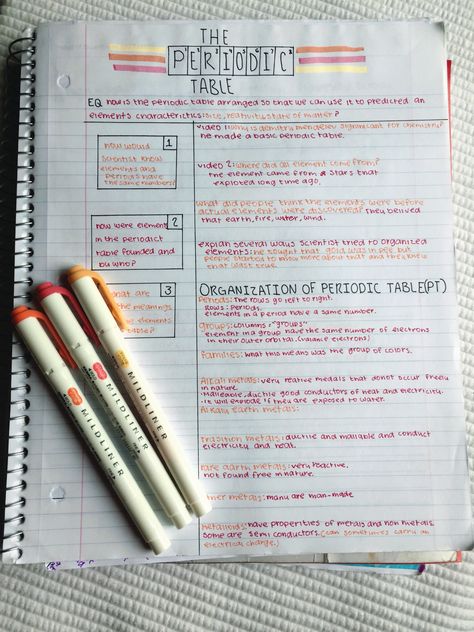 THE
PERIODIC
TABLE
EQ how is the periodic table arranged so that we can use it to predicted an
elements characteristics: size, reativity, state of matter?
1
how would
scientist know
elements and
periods have
the same numbers?
video 1: why is demitri mendelev significant for chemistry?
he made a basic periodic table.
video 2: where did all element come from?
the element came from a stars that
exploted long time ago.
what did people think the elements were before
actual elements were discovered? They belived
that earth, fire, water, wind.
2
how were element
in the periodict
table founded and
by who?
explan several ways scientist tried to organized
elements: he thought that gold was in pee, but
people started to know more about that and they knew
that wast true.
3
what are
the meanings
elements
ORGANIZATION OF PERIODIC TABLE(PT)
Periods: The rows go left to right.
Rows: Periods,
elements in a period have a same number.
Groups: columns = "groups"
element in a group have the same number of electrons
in their outer orbital. (valance electrons)
Families: what this means was the group of colors.
Alkali metals: very reative medals that donot occur freely
in nature.
Malleable, ductile good conductors of heat and electricity.
it will exolode if they are exposed to water.
Alkaly earth metals:
tradition metals: ductile and maliable and conduct
electricity and heat.
rare earth metals: very reactive,
not found free in nature.
ther metals: many are man-made
metalloids: have properities of metals and non metals.
some are semi conductors. (can sometimes carry an
electrical charge.)
MILDLINER
MILDLINER
MILDLINER